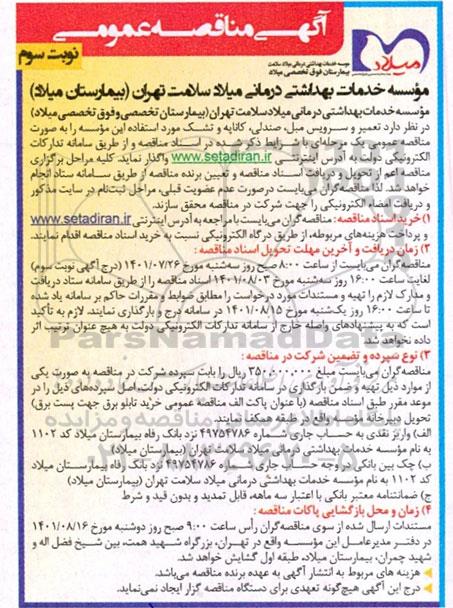 آگهی مناقصه عمومی
نوبت سوم
میلاد
موسسه خدمات بهداشتی درمانی میلاد سلامت
بیمارستان فوق تخصصی میلاد
مؤسسه خدمات بهداشتی درمانی میلاد سلامت تهران (بیمارستان میلاد)
مؤسسه خدمات بهداشتی درمانی میلاد سلامت تهران (بیمارستان تخصصی وفوق تخصصی میلاد)
در نظر دارد تعمیر و سرویس مبل، صندلی، کاناپه و تشک مورد استفاده این مؤسسه را به صورت
مناقصه عمومی یک مرحله‌ای با شرایط ذکر شده در اسناد مناقصه و از طریق سامانه تدارکات
الکترونیکی دولت به آدرس اینترنتی www.setadiran.ir واگذار نماید. کلیه مراحل برگزاری
مناقصه اعم از تحویل و دریافت اسناد مناقصه و تعیین برنده مناقصه از طریق سامانه ستاد انجام
خواهد شد. لذا مناقصه‌گران می‌بایست درصورت عدم عضویت قبلی، مراحل ثبت‌نام در سایت مذکور
و دریافت امضاء الکترونیکی را جهت شرکت در مناقصه محقق سازند.
۱) خرید اسناد مناقصه: مناقصه‌گران می‌بایست با مراجعه به آدرس اینترنتی www.setadiran.ir
و پرداخت هزینه‌های مربوطه، از طریق درگاه الکترونیکی نسبت به خرید اسناد مناقصه اقدام نمایند.
۲) زمان دریافت و آخرین مهلت تحویل اسناد مناقصه:
مناقصه‌گران می‌بایست از ساعت ۸:۰۰ صبح روز سه‌شنبه مورخ ۱۴۰۱/۰۷/۲۶ (درج آگهی نوبت سوم)
لغایت ساعت ۱۶:۰۰ روز سه‌شنبه مورخ ۱۴۰۱/۰۸/۰۳ اسناد مناقصه را از طریق سامانه ستاد دریافت
و مدارک لازم را تهیه و مستندات مورد درخواست را مطابق ضوابط و مقررات حاکم بر سامانه یاد شده
تا ساعت ۱۶:۰۰ روز یک‌شنبه مورخ ۱۴۰۱/۰۸/۱۵ در سامانه درج و بارگذاری نمایند. لازم به تأکید
است که به پیشنهادهای واصله خارج از سامانه تدارکات الکترونیکی دولت به هیچ عنوان ترتیب اثر
داده نخواهد شد.
۳) نوع سپرده و تضمین شرکت در مناقصه:
مناقصه‌گران می‌بایست مبلغ ۳۵۰،۰۰۰،۰۰۰ ریال را بابت سپرده شرکت در مناقصه به صورت یکی
از موارد ذیل تهیه و ضمن بارگذاری در سامانه تدارکات الکترونیکی دولت، اصل سپرده‌های ذیل را در
موعد مقرر طبق اسناد مناقصه (با عنوان پاکت الف مناقصه عمومی خرید تابلو برق جهت پست برق)
تحویل دبیرخانه مؤسسه واقع در طبقه همکف نمایند.
الف) واریز نقدی به حساب جاری شماره ۴۹۷۵۴۷۸۶ نزد بانک رفاه بیمارستان میلاد کد ۱۱۰۲
به نام مؤسسه خدمات بهداشتی درمانی میلاد سلامت تهران (بیمارستان میلاد)
ب) چک بین بانکی در وجه حساب جاری با شماره ۴۹۷۵۴۷۸۶ نزد بانک رفاه بیمارستان میلاد
کد ۱۱۰۲ به نام مؤسسه خدمات بهداشتی درمانی میلاد سلامت تهران (بیمارستان میلاد)
ج) ضمانتنامه معتبر بانکی با اعتبار سه ماهه، قابل تمدید و بدون قید و شرط
۴) زمان و محل بازگشایی پاکات مناقصه:
مستندات ارسال شده از سوی مناقصه‌گران رأس ساعت ۹:۰۰ صبح روز دوشنبه مورخ ۱۴۰۱/۰۸/۱۶
در دفتر مدیرعامل این مؤسسه واقع در تهران، بزرگراه شهید همت، بین شیخ فضل اله و
شهید چمران، بیمارستان میلاد، طبقه اول گشایش خواهد شد.
هزینه های مربوط به انتشار آگهی به عهده برنده مناقصه می‌باشد.
درج این آگهی هیچ‌گونه تعهدی برای دستگاه مناقصه گزار ایجاد نمی‌نماید.
ParsNamadData